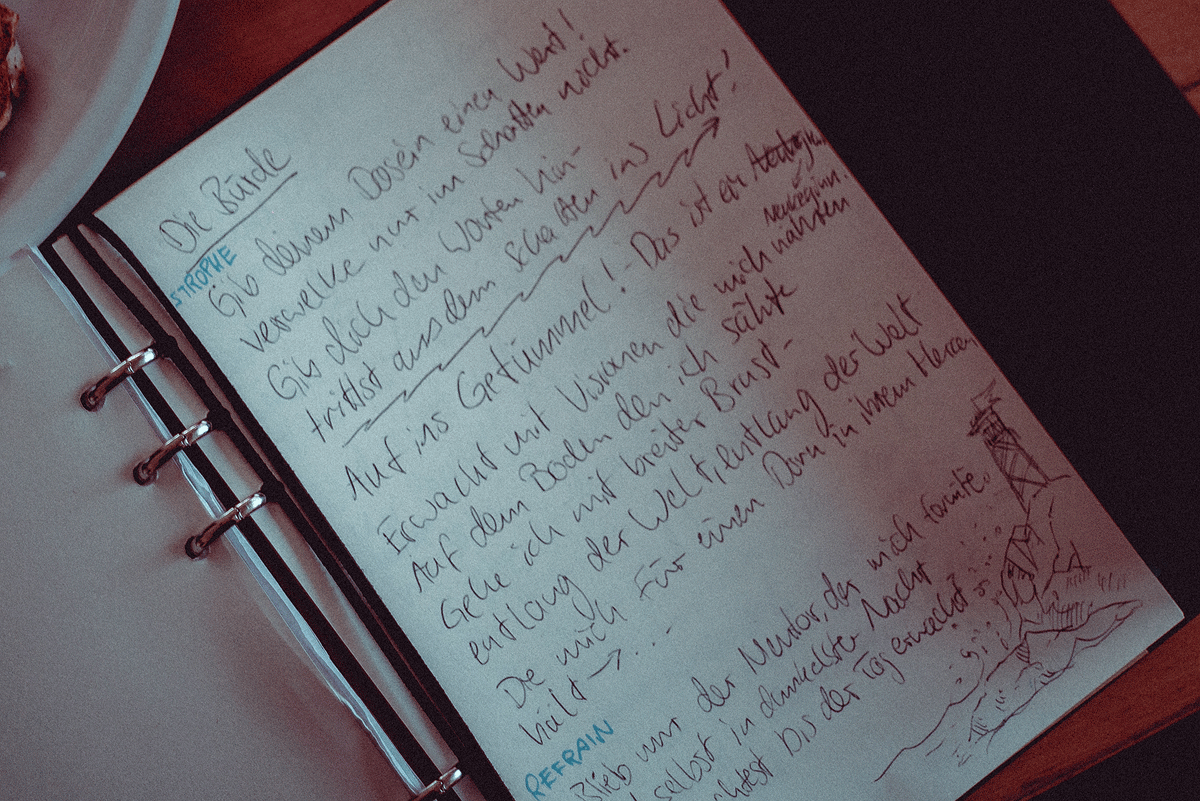 Die Bürde
STROPHE
Gib deinem Dasein einen Wert!
verwelke nur im Schatten nicht.
Gib dich den Worten hin-
trittst aus dem Schatten ins Licht!
Auf ins Getümmel! - Das ist ein
Neubeginn.
Erwacht mit Visionen die mich nährten
Auf dem Boden den ich sähte
Gehe ich mit breiter Brust-
entlang der Welt, entlang der Welt
Die mich für einen Dorn in ihrem Herzen
hält → . . -
REFRAIN
Blieb nur der Mentor, der mich formte.
selbst in dunkelster Nacht
bis der Tag erwacht